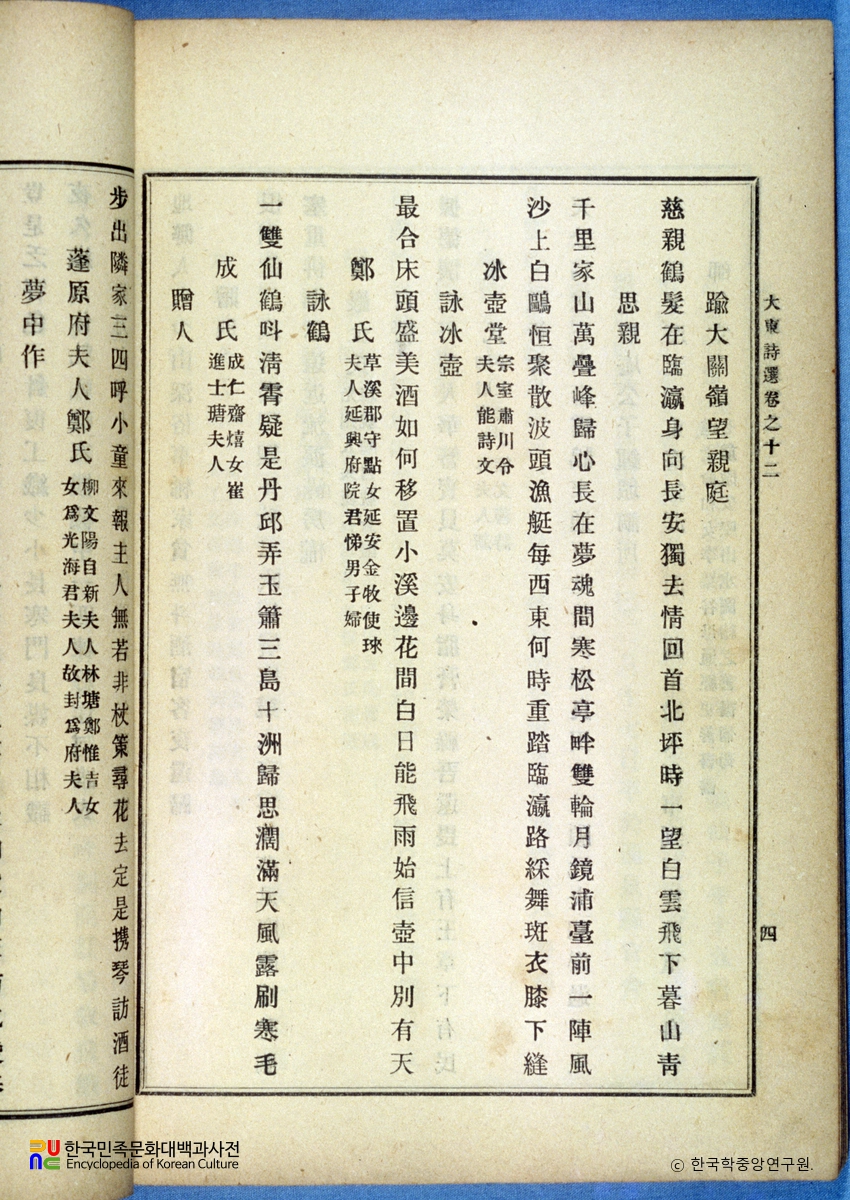 大東詩選卷之十二
四
踰大關嶺望親庭
慈親鶴髮在臨瀛身向長安獨去情回首北坪時一望白雲飛下暮山靑
思親
千里家山萬疊峰歸心長在夢魂間寒松亭畔雙輪月鏡浦臺前一陣風
沙上白鷗恒聚散波頭漁艇每西東何時重踏臨瀛路綵舞斑衣膝下縫
氷壺堂 宗室肅川令
夫人能詩文
詠冰壺
最合床頭盛美酒如何移置小溪邊花間白日能飛雨始信壺中別有天
鄭氏 草溪郡守點女延安金牧使琜
夫人延興府院君悌男子婦
詠鶴
一雙仙鶴呌淸霄疑是丹邱弄玉簫三島十洲歸思濶滿天風露刷寒毛
成氏 成仁齋熺女崔
進士瑭夫人
贈人
步出隣家三四呼小童來報主人無若非杖策尋花去定是携琴訪酒徒
蓬原府夫人鄭氏 柳文陽自新夫人林塘鄭惟吉女
女爲光海君夫人故封爲府夫人
夢中作
한국민족문화대백과사전
Encyclopedia of Korean Culture
© 한국학중앙연구원.